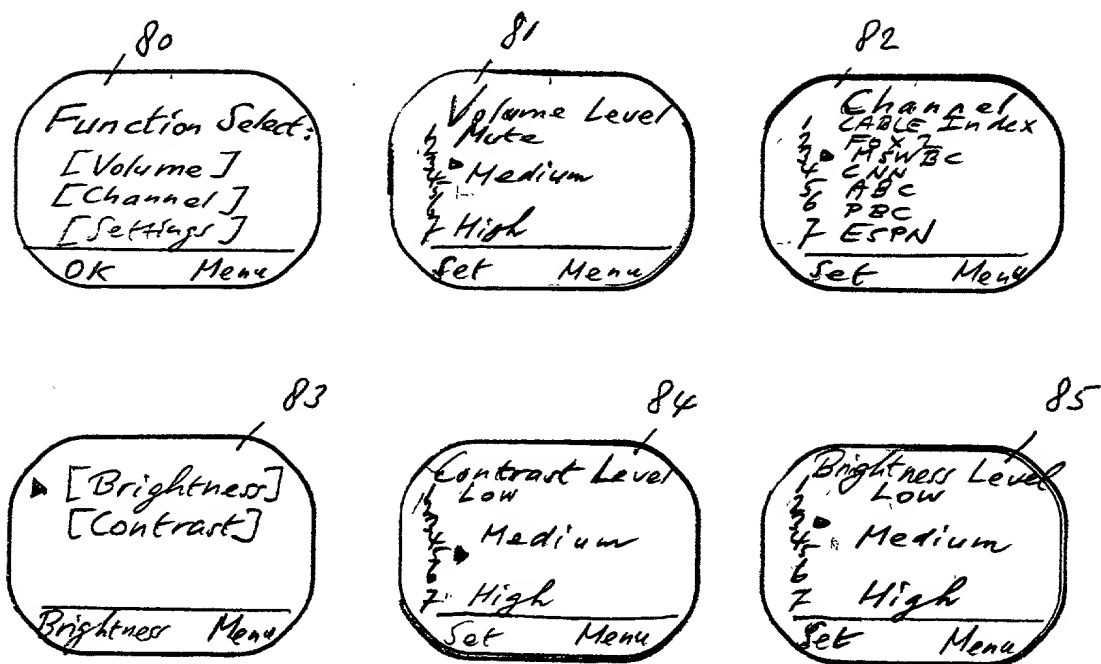 80
Function Select:
[Volume]
[Channel]
[Settings]
OK Menu
81
Volume Level
1 Mute
2
3
4 Medium
5
6
7 High
Set Menu
82
Channel
1 CABLE Index
2 FOX 2
3 MSWBC
4 CNN
5 ABC
6 PBC
7 ESPN
Set Menu
83
[Brightness]
[Contrast]
Brightness Menu
84
Contrast Level
1 Low
2
3
4 Medium
5
6
7 High
Set Menu
85
Brightness Level
1 Low
2
3
4 Medium
5
6
7 High
Set Menu